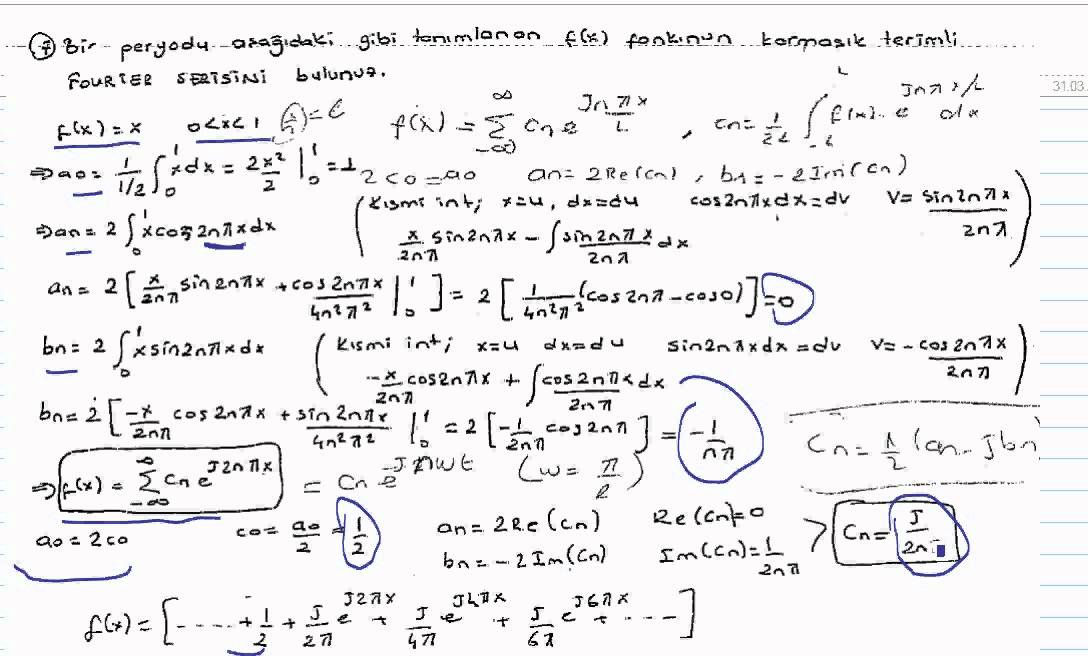 ④ Bir peryodu aşağıdaki gibi tanımlanan f(x) fonk.nun karmaşık terimli
FOURIER SERİSİNİ bulunuz.
31.03.
f(x) = x 0<x<1 f(x) = Σ_{-∞}^{∞} Cn e^{Jnπx/L} , Cn = 1/2L ∫_{-L}^{L} f(x). e^{Jnπx/L} dx
⇒ a0 = 1/(1/2) ∫_0^1 x dx = 2x²/2 |_0^1 = 1 2C0 = a0 an = 2Re(Cn) , bn = -2Im(Cn)
⇒ an = 2 ∫_0^1 x cos 2nπx dx ( Kısmi int; x=u, dx=du cos2nπx dx = dv V = sin2nπx/2nπ
x/2nπ sin2nπx - ∫ sin2nπx/2nπ dx )
an = 2 [ x/2nπ sin2nπx + cos2nπx/4n²π² |_0^1 ] = 2 [ 1/4n²π² (cos2nπ - cos0) ] = 0
bn = 2 ∫_0^1 x sin2nπx dx ( Kısmi int; x=u dx=du sin2nπx dx = dv V = -cos2nπx/2nπ
-x/2nπ cos2nπx + ∫ cos2nπx dx/2nπ )
bn = 2 [ -x/2nπ cos2nπx + sin2nπx/4n²π² |_0^1 = 2 [ -1/2nπ cos2nπ ] = -1/nπ
Cn = 1/2 (an - Jbn
⇒ f(x) = Σ_{-∞}^{∞} Cn e^{J2nπx} = Cn e^{-Jnwt} (w = π/l)
a0 = 2C0 C0 = a0/2 = 1/2 an = 2Re(Cn) Re(Cn) = 0 > Cn = J/2n
bn = -2Im(Cn) Im(Cn) = 1/2nπ
f(x) = [ ---- + 1/2 + J/2π e^{J2πx} + J/4π e^{J4πx} + J/6π e^{J6πx} + --- ]